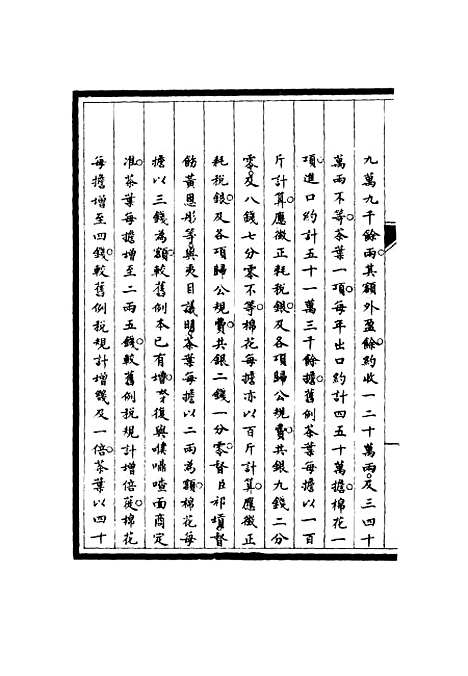 九萬九千餘兩其額外盈餘約收一二十萬兩及三四十
萬兩不等茶葉一項每年出口約計四五十萬擔棉花一
項進口約計五十一萬三千餘擔舊例茶葉每擔以一百
斤計算應徵正耗稅銀及各項歸公規費共銀九錢二分
零及八錢七分零不等棉花每擔亦以百斤計算應徵正
耗稅銀及各項歸公規費共銀二錢一分零督臣祁𡎴督
飭黃恩彤等與夷目議明茶葉每擔以二兩為額棉花每
擔以三錢為額較舊例本已有增茲復與㗳嘣喳面商定
准茶葉每擔增至二兩五錢較舊例稅規計增倍蓰棉花
每擔增至四錢較舊例稅規計增幾及一倍茶葉以四十